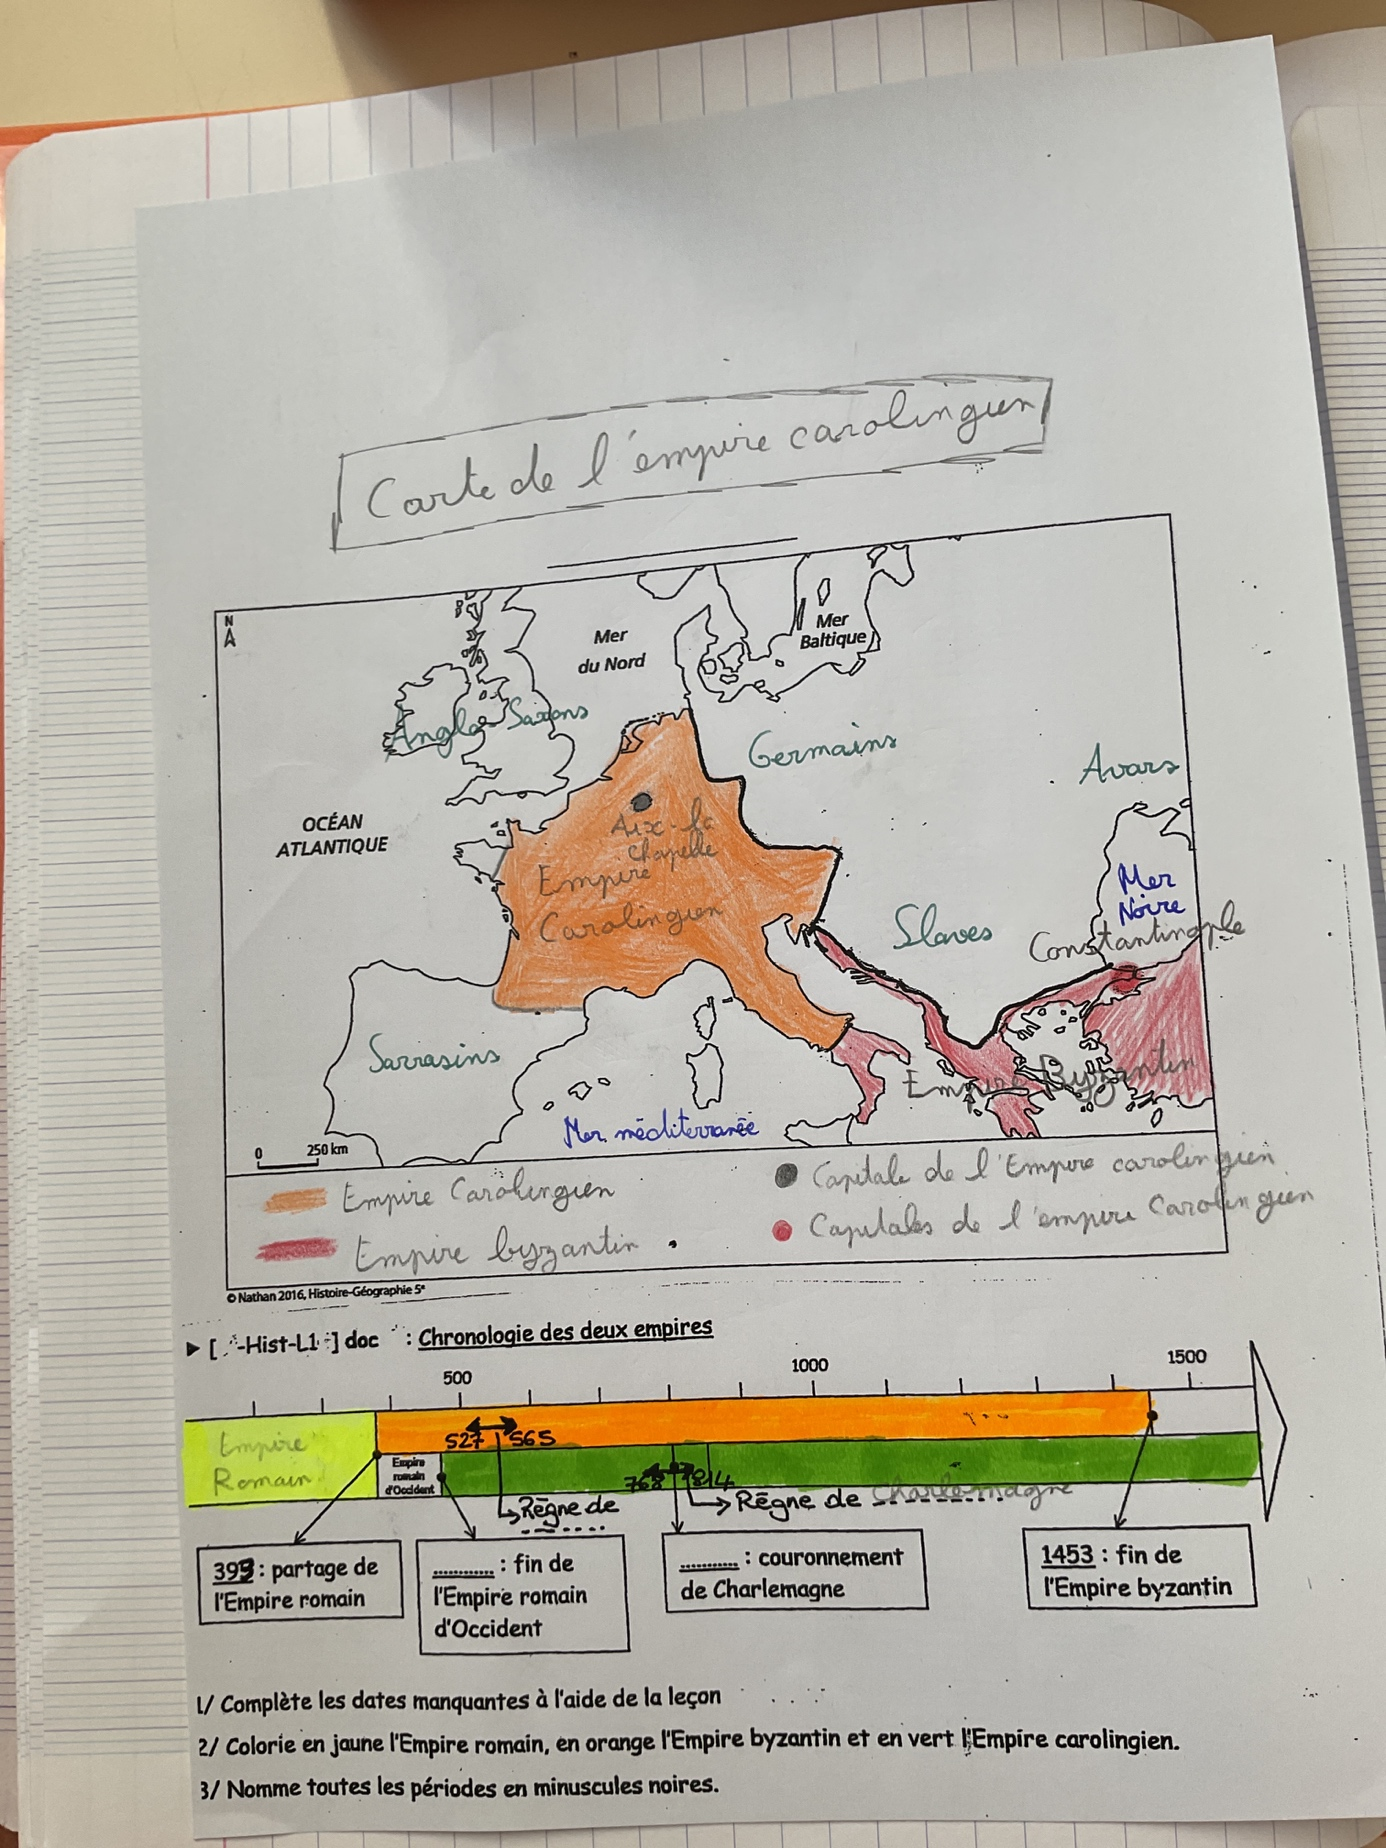 Carte de l'émpire carolingien
N
Mer
du Nord
Mer
Baltique
Anglo-Saxons
Germains
Avars
OCÉAN
ATLANTIQUE
Aix-la
Chapelle
Empire
Carolingien
Mer
Noire
Slaves
Constantinople
Sarrasins
Empire Byzantin
Mer méditerranée
0 250 km
Empire Carolingien
Capitale de l'Empire carolingien
Empire byzantin
Capitales de l'empire Carolingien
© Nathan 2016, Histoire-Géographie 5e
► [ -Hist-L1 ] doc : Chronologie des deux empires
500 1000 1500
Empire
Romain
527 565
Empire
romain
d'Occident
768 814
Règne de
Règne de Charlemagne
395 : partage de
l'Empire romain
............ : fin de
l'Empire romain
d'Occident
........... : couronnement
de Charlemagne
1453 : fin de
l'Empire byzantin
1/ Complète les dates manquantes à l'aide de la leçon
2/ Colorie en jaune l'Empire romain, en orange l'Empire byzantin et en vert l'Empire carolingien.
3/ Nomme toutes les périodes en minuscules noires.